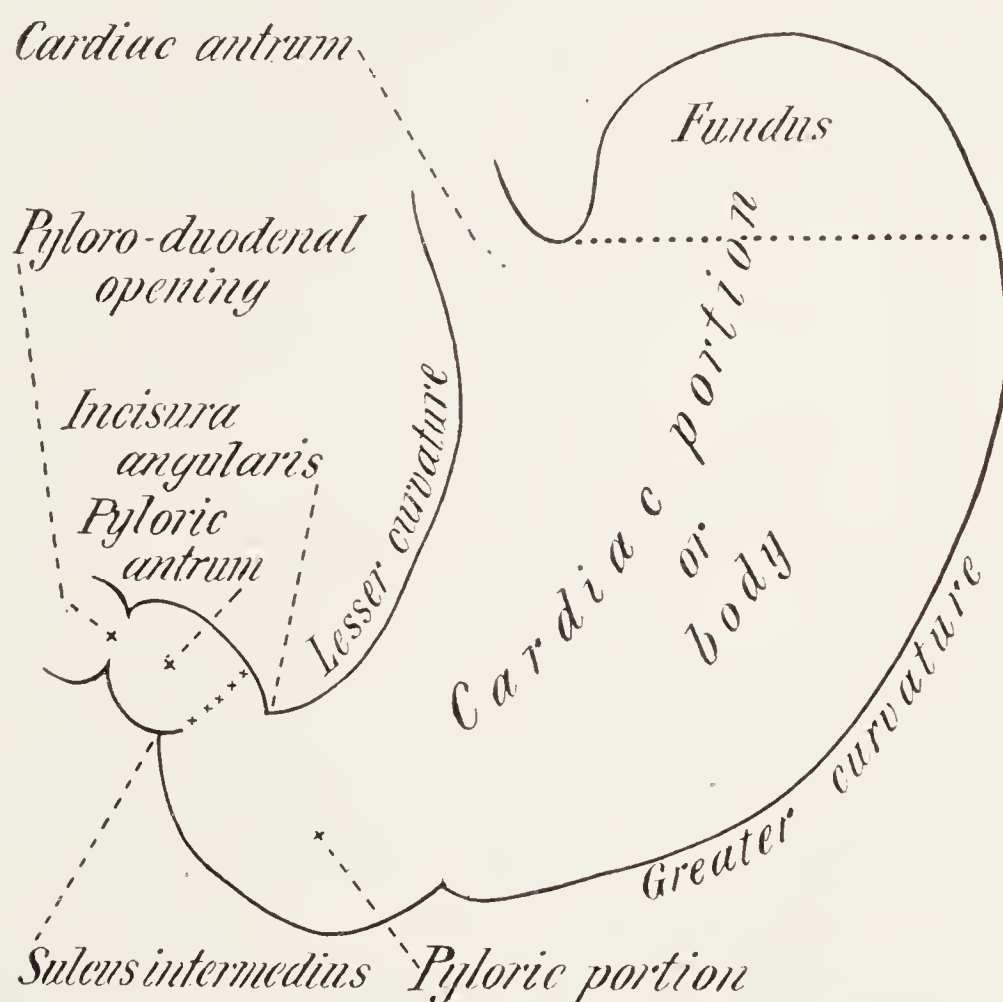 Cardiac antrum
Fundus
Pyloro-duodenal
opening
Incisura
angularis
Pyloric
antrum
Lesser curvature
Cardiac portion
or
body
Greater curvature
Sulcus intermedius
Pyloric portion